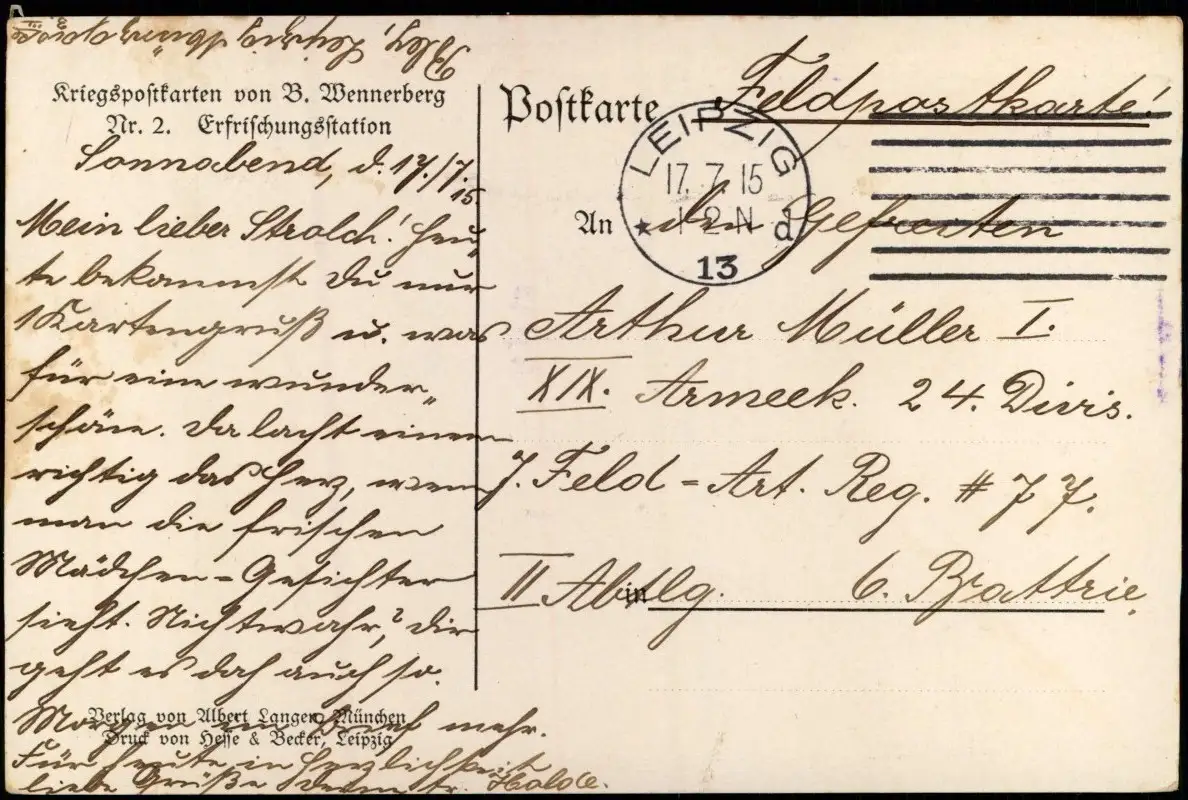 Kriegspostkarten von B. Wennerberg
Nr. 2. Erfrischungsstation
Sonnabend, d. 17./7.
15.
Mein lieber Strolch! Heu„
te bekommst Du nur
1 Kartengruß u. was
für eine wunder„
schöne. Da lacht einem
richtig das Herz, wenn
man die frischen
Mädchen-Gesichter
sieht. Nichtwahr? dir
geht es doch auch so.
Morgen im Brief mehr.
Für heute in Herzlichkeit
liebe Grüße Deine tr. Holde.
Verlag von Albert Langen, München
Druck von Hesse & Becker, Leipzig
Postkarte
Feldpostkarte!
LEIPZIG
17. 7. 15
* 1-2 N d
13
An den Gefreiten
Arthur Müller I.
XIX. Armeek. 24. Divis.
7. Feld-Art. Reg. # 77.
II Abtlg. 6. Battrie.
in